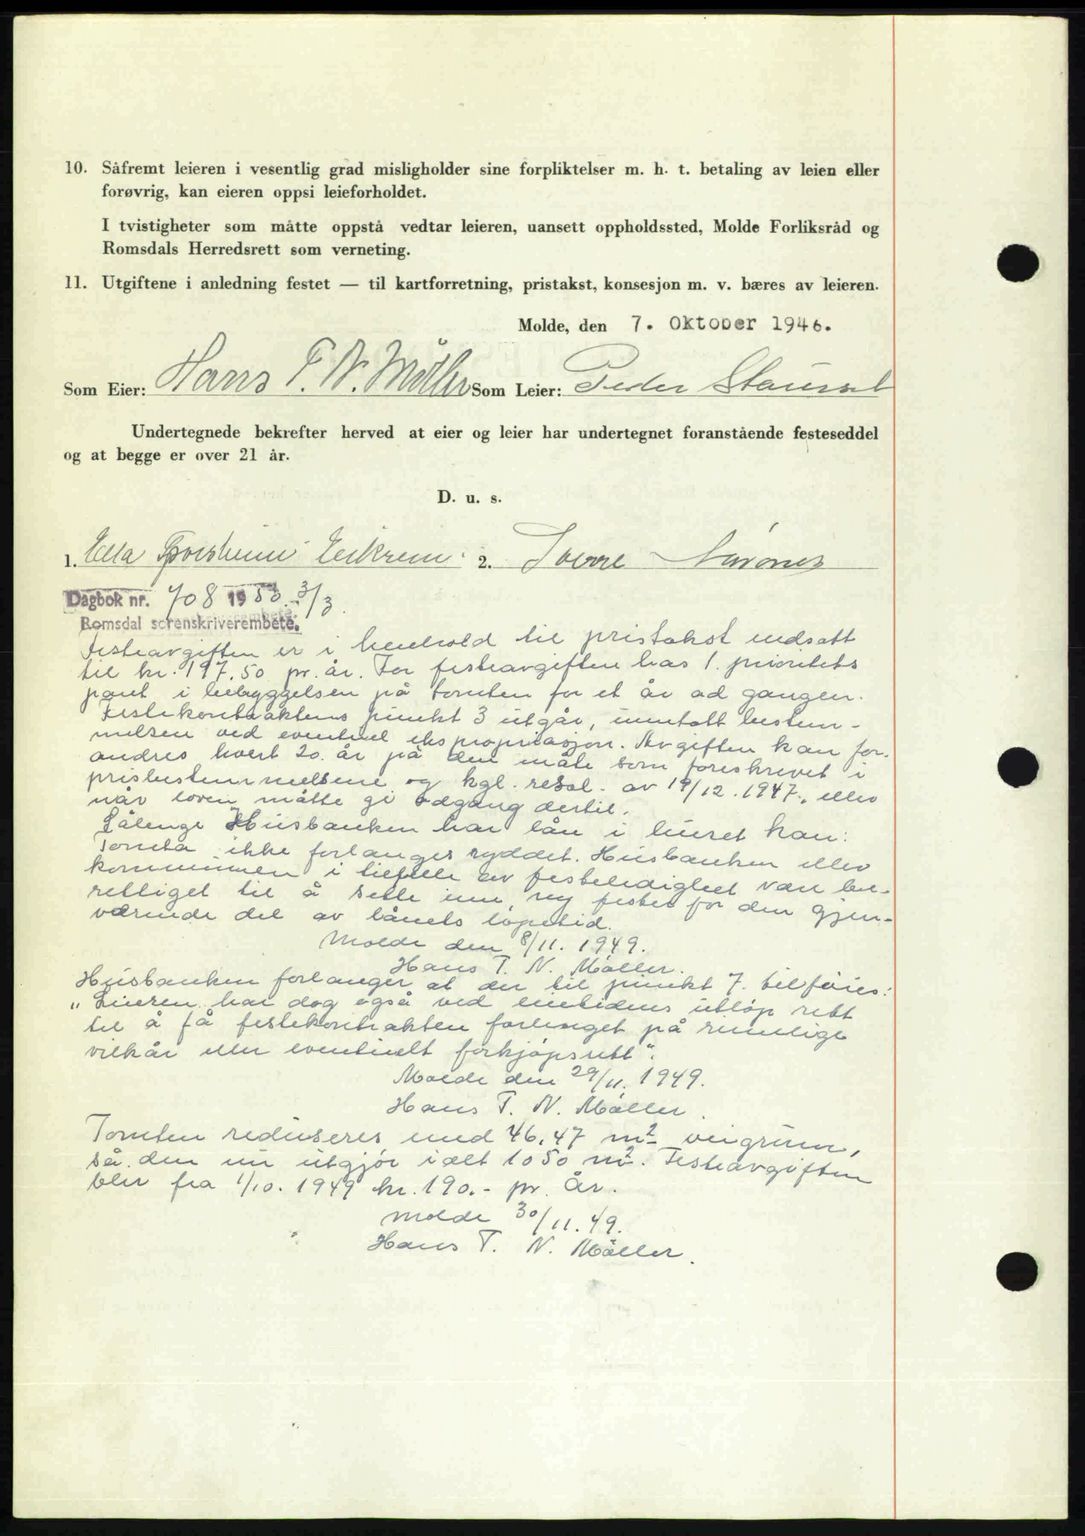 10. Såfremt leieren i vesentlig grad misligholder sine forpliktelser m. h. t. betaling av leien eller
forøvrig, kan eieren oppsi leieforholdet.
I tvistigheter som måtte oppstå vedtar leieren, uansett oppholdssted, Molde Forliksråd og
Romsdals Herredsrett som verneting.
11. Utgiftene i anledning festet — til kartforretning, pristakst, konsesjon m. v. bæres av leieren.
Molde, den 7. Oktober 1946.
Som Eier: Hans T. N. Møller Som Leier: Peder
Undertegnede bekrefter herved at eier og leier har undertegnet foranstående festeseddel
og at begge er over 21 år.
D. u. s.
1. Ella Eikrem 2. Sverre
Dagbok nr. 708 1953 3/3
Romsdal sorenskriverembete.
Festeavgiften er i henhold til pristakst nedsatt
til kr. 197.50 pr. år. For festeavgiften has 1. prioritets
pant i bebyggelsen på tomten for et år ad gangen.
Festekontraktens punkt 3 utgår, unntatt bestem-
melsen ved eventuel ekspropriasjon. Avgiften kan for-
andres hvert 20. år på den måte som foreskrevet i
prisbestemmelsene og kgl. resol. av 19/12. 1947, eller
når loven måtte gi adgang dertil.
Sålenge Husbanken har lån i huset kan:
Tomta ikke forlanges ryddet. Husbanken eller
kommunen i tilfelle av festeledighet være be-
rettiget til å sette inn ny fester for den gjen-
værende del av lånets løpetid.
Molde den 8/11. 1949.
Hans T. N. Møller.
Husbanken forlanger at der til punkt 7. tilføies:
„Leieren har dog også ved leietidens utløp rett
til å få festekontrakten forlenget på rimelige
vilkår eller eventuelt forkjøpsrett“.
Molde den 29/11. 1949.
Hans T. N. Møller.
Tomten reduseres med 46,47 m² veigrunn,
så den nu utgjør ialt 1050 m². Festeavgiften
blir fra 1/10. 1949 kr. 190.- pr. år.
Molde 30/11. 49.
Hans T. N. Møller.